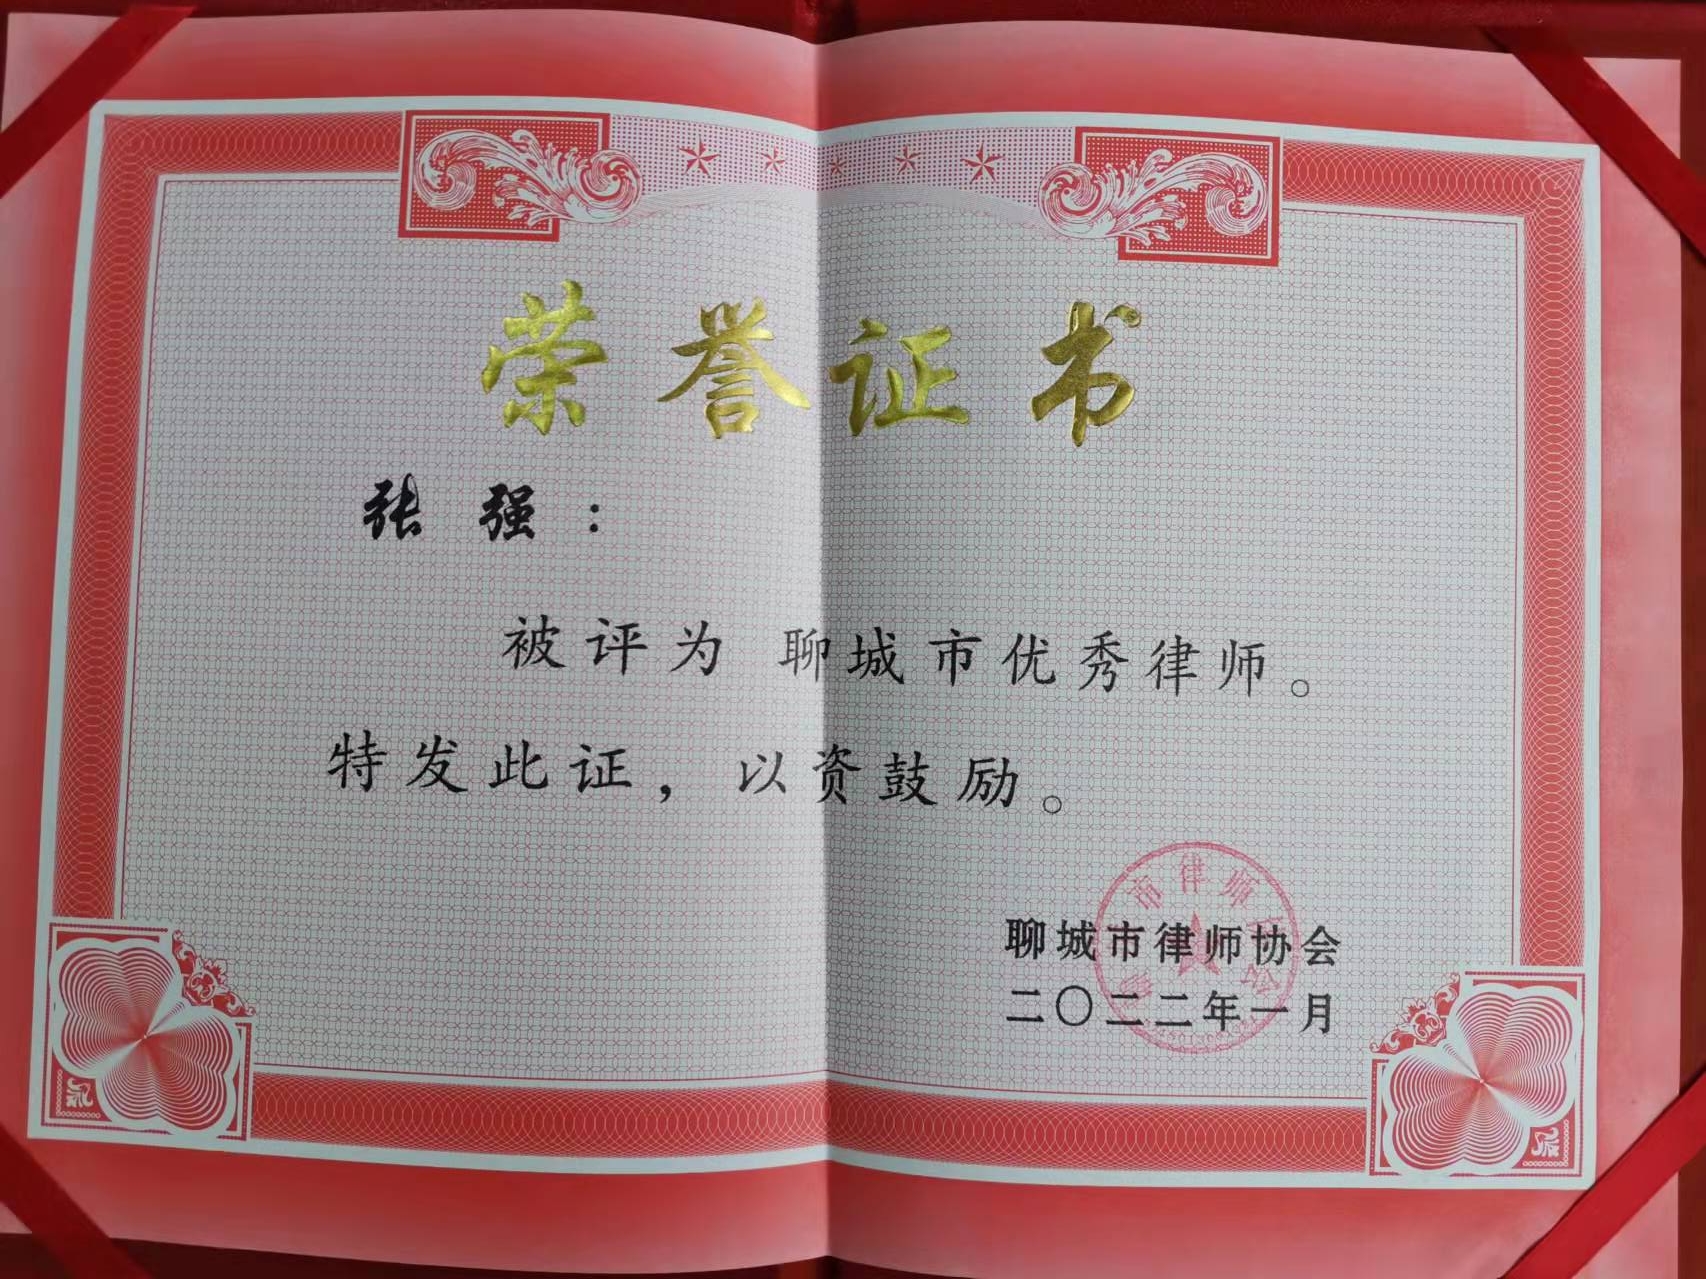 荣誉证书
张强：
被评为 聊城市优秀律师。
特发此证，以资鼓励。
市律师
聊城市律师协会
二〇二二年一月